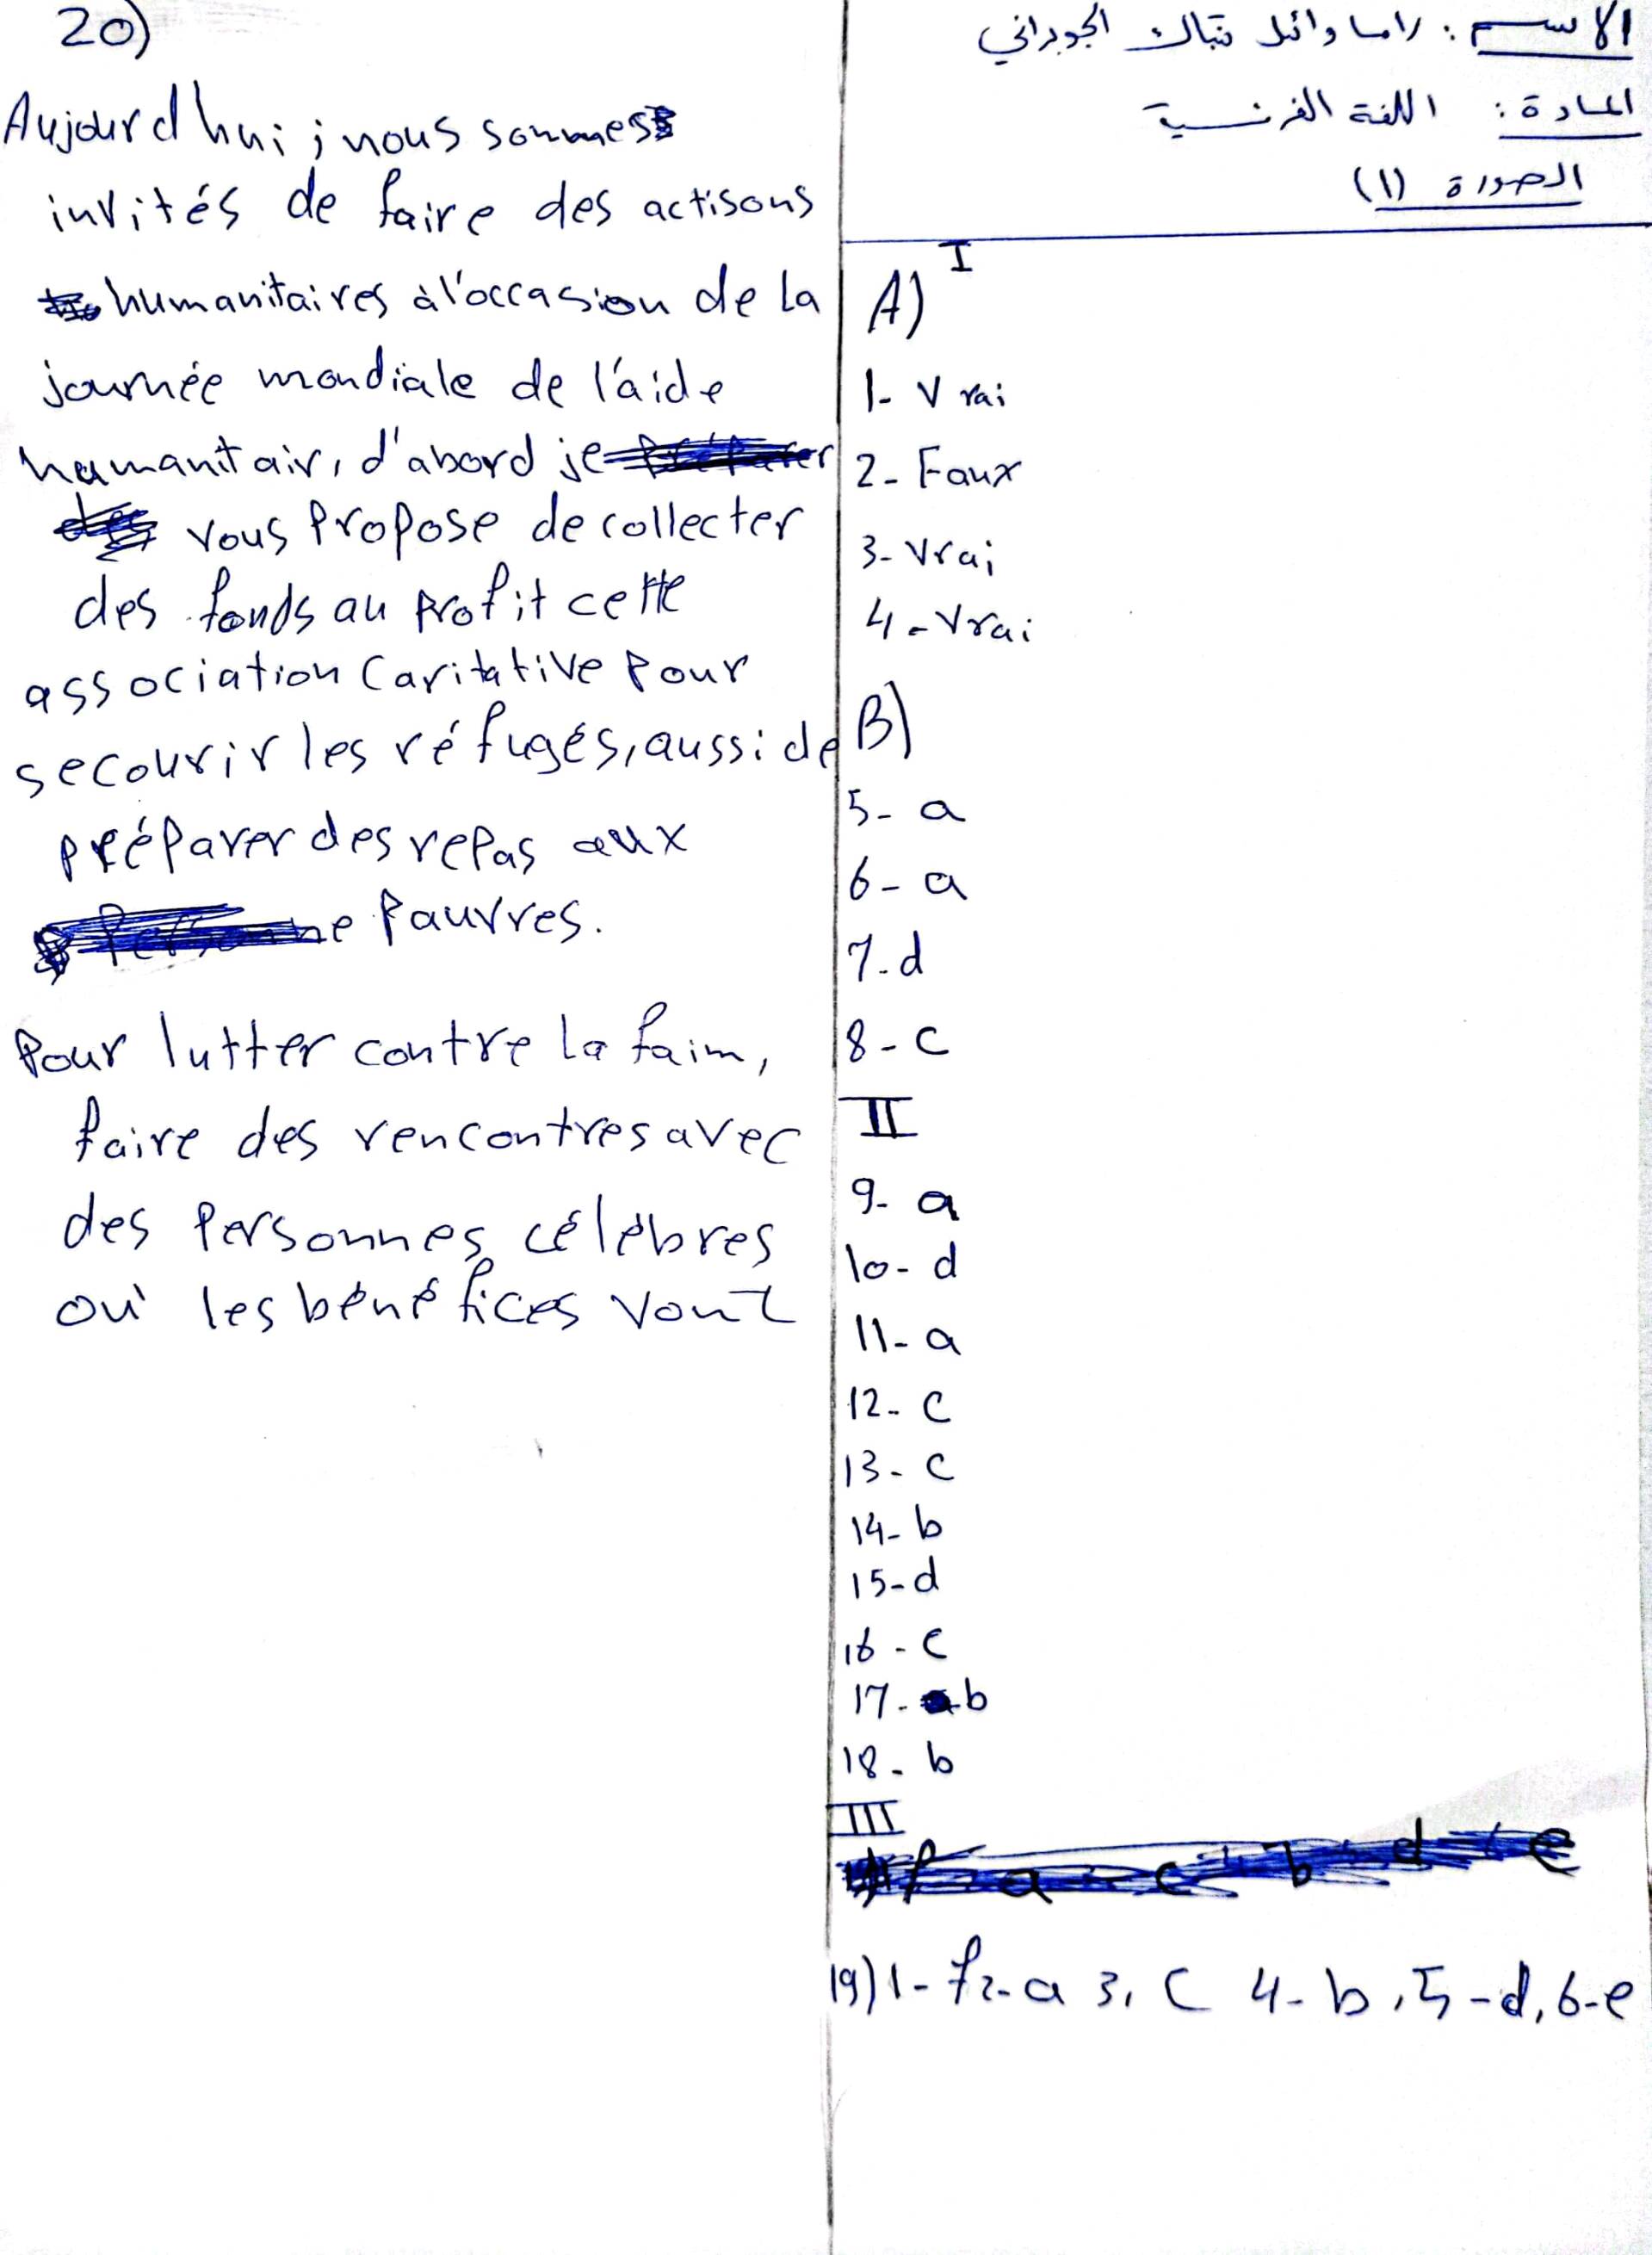 الاسم : راما وائل تباك الجوراني
المادة : اللغة الفرنسية
الصورة (١)
I
A)
1- Vrai
2- Faux
3- Vrai
4- Vrai
B)
5- a
6- a
7- d
8- c
II
9- a
10- d
11- a
12- c
13- c
14- b
15- d
16- c
17- b
18- b
III
f a c b d e
19) 1- f 2- a 3, c 4- b, 5-d, 6-e
20)
Aujourd'hui ; nous sommes
invités de faire des actisons
humanitaires à l'occasion de la
journée mondiale de l'aide
humanitair, d'abord je
vous propose de collecter
des fonds au profit cette
association caritative pour
secourir les réfugés, aussi de
préparer des repas aux
pauvres.
Pour lutter contre la faim,
faire des rencontres avec
des personnes célèbres
où les bénéfices vont